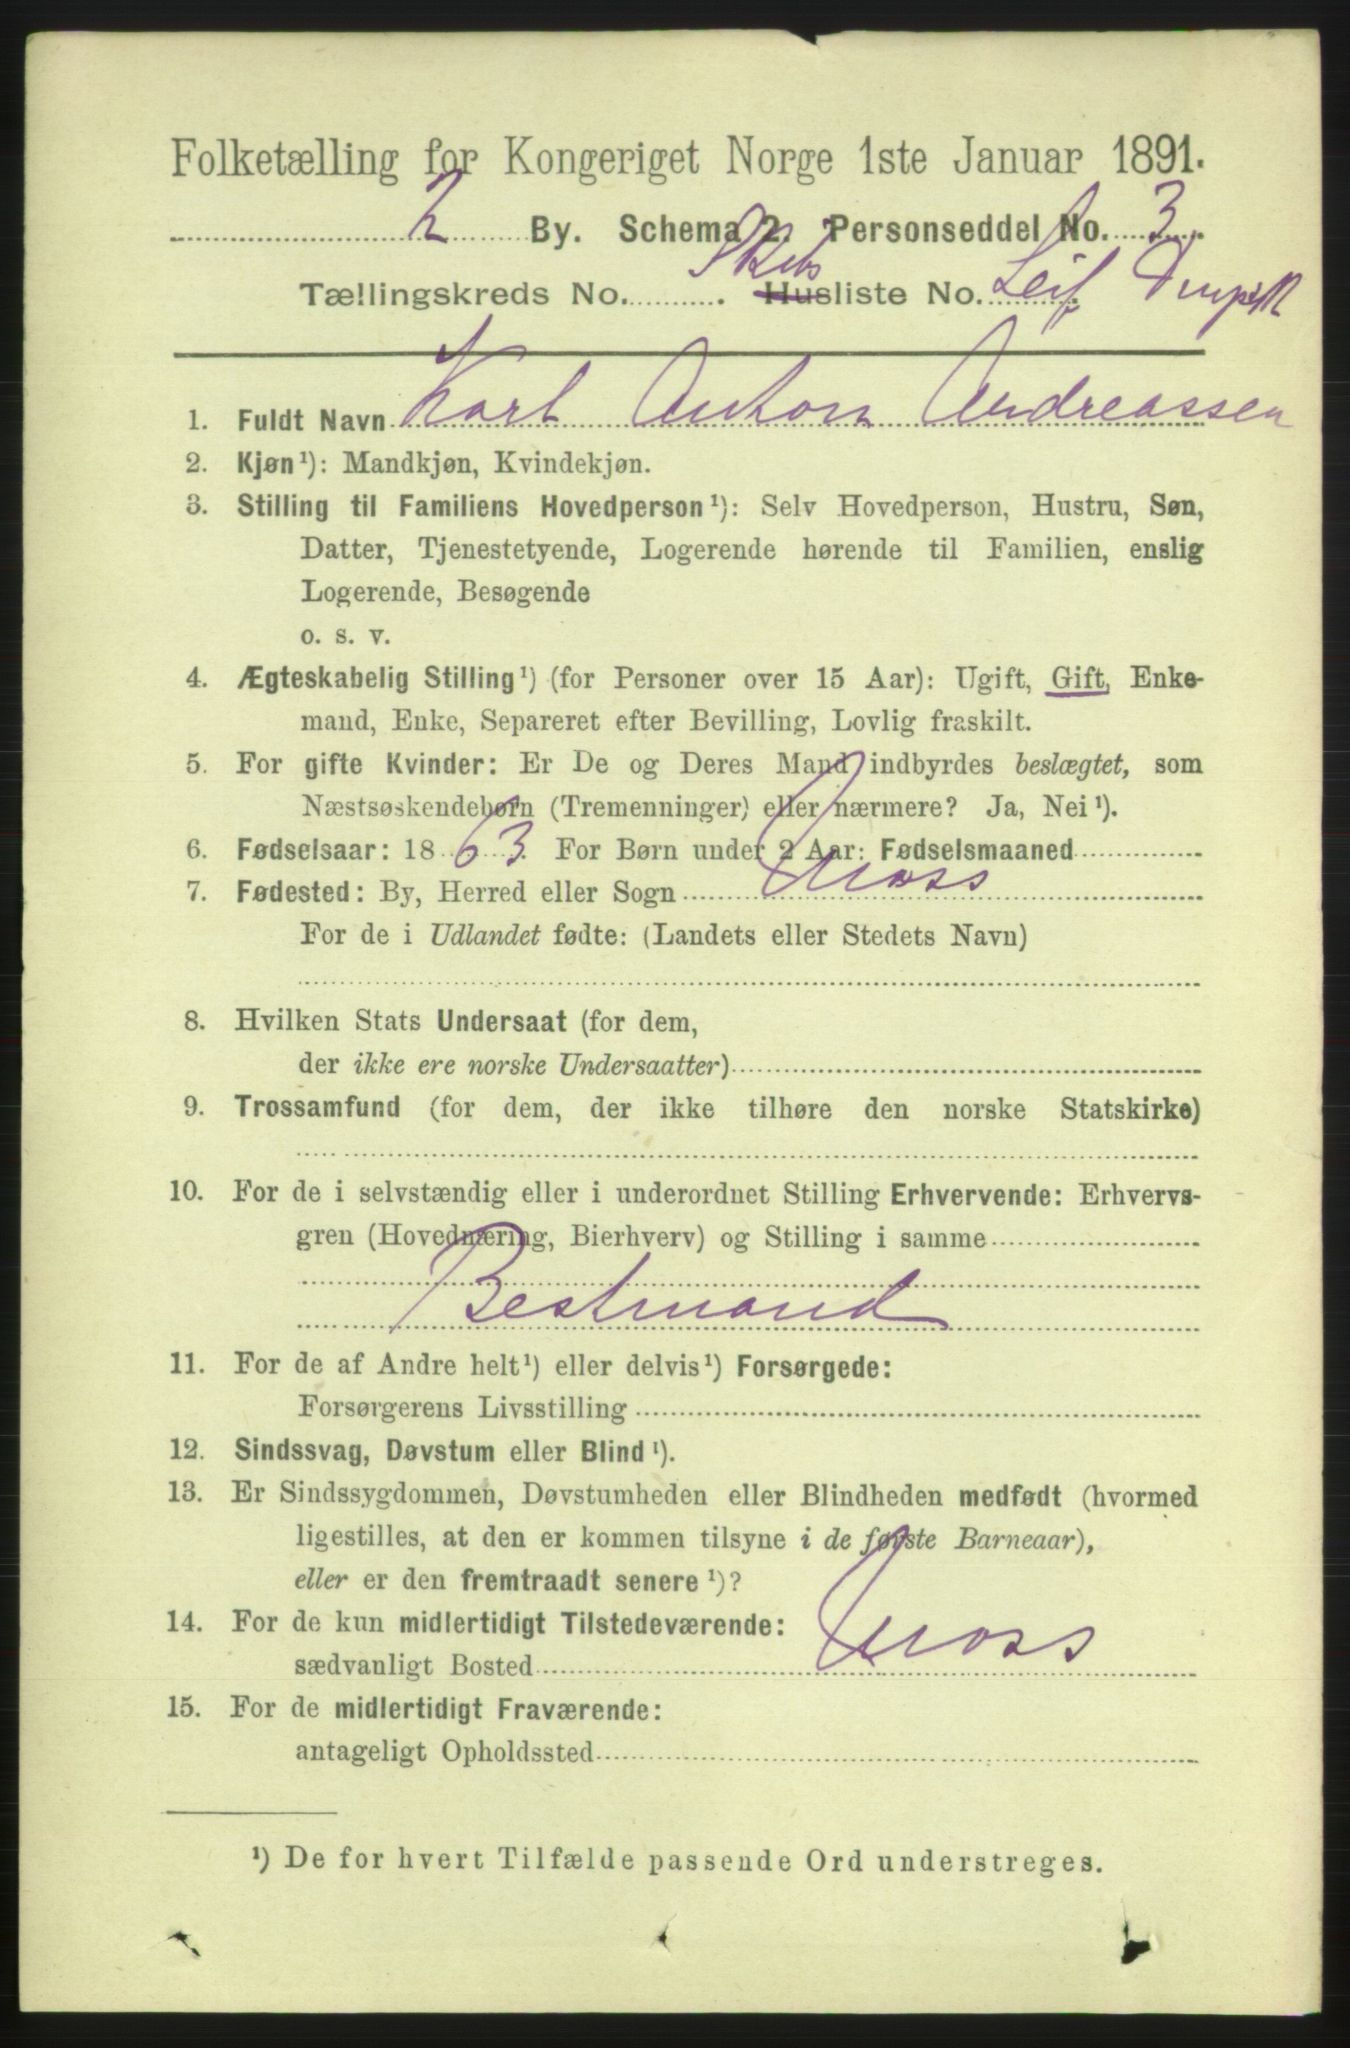 Folketælling for Kongeriget Norge 1ste Januar 1891.
2 By. Schema 2. Personseddel No. 3
Tællingskreds No. . Skibsliste No. Leif
1. Fuldt Navn Karl Anton Andreassen
2. Kjøn¹): Mandkjøn, Kvindekjøn.
3. Stilling til Familiens Hovedperson¹): Selv Hovedperson, Hustru, Søn,
Datter, Tjenestetyende, Logerende hørende til Familien, enslig
Logerende, Besøgende
o. s. v.
4. Ægteskabelig Stilling¹) (for Personer over 15 Aar): Ugift, Gift, Enke-
mand, Enke, Separeret efter Bevilling, Lovlig fraskilt.
5. For gifte Kvinder: Er De og Deres Mand indbyrdes beslægtet, som
Næstsøskendebørn (Tremenninger) eller nærmere? Ja, Nei¹).
6. Fødselsaar: 1863. For Børn under 2 Aar: Fødselsmaaned
7. Fødested: By, Herred eller Sogn Moss
For de i Udlandet fødte: (Landets eller Stedets Navn)
8. Hvilken Stats Undersaat (for dem,
der ikke ere norske Undersaatter)
9. Trossamfund (for dem, der ikke tilhøre den norske Statskirke)
10. For de i selvstændig eller i underordnet Stilling Erhvervende: Erhvervs-
gren (Hovednæring, Bierhverv) og Stilling i samme
Bestmand
11. For de af Andre helt¹) eller delvis¹) Forsørgede:
Forsørgerens Livsstilling
12. Sindssvag, Døvstum eller Blind¹).
13. Er Sindssygdommen, Døvstumheden eller Blindheden medfødt (hvormed
ligestilles, at den er kommen tilsyne i de første Barneaar),
eller er den fremtraadt senere¹)?
14. For de kun midlertidigt Tilstedeværende:
sædvanligt Bosted Moss
15. For de midlertidigt Fraværende:
antageligt Opholdssted
¹) De for hvert Tilfælde passende Ord understreges.